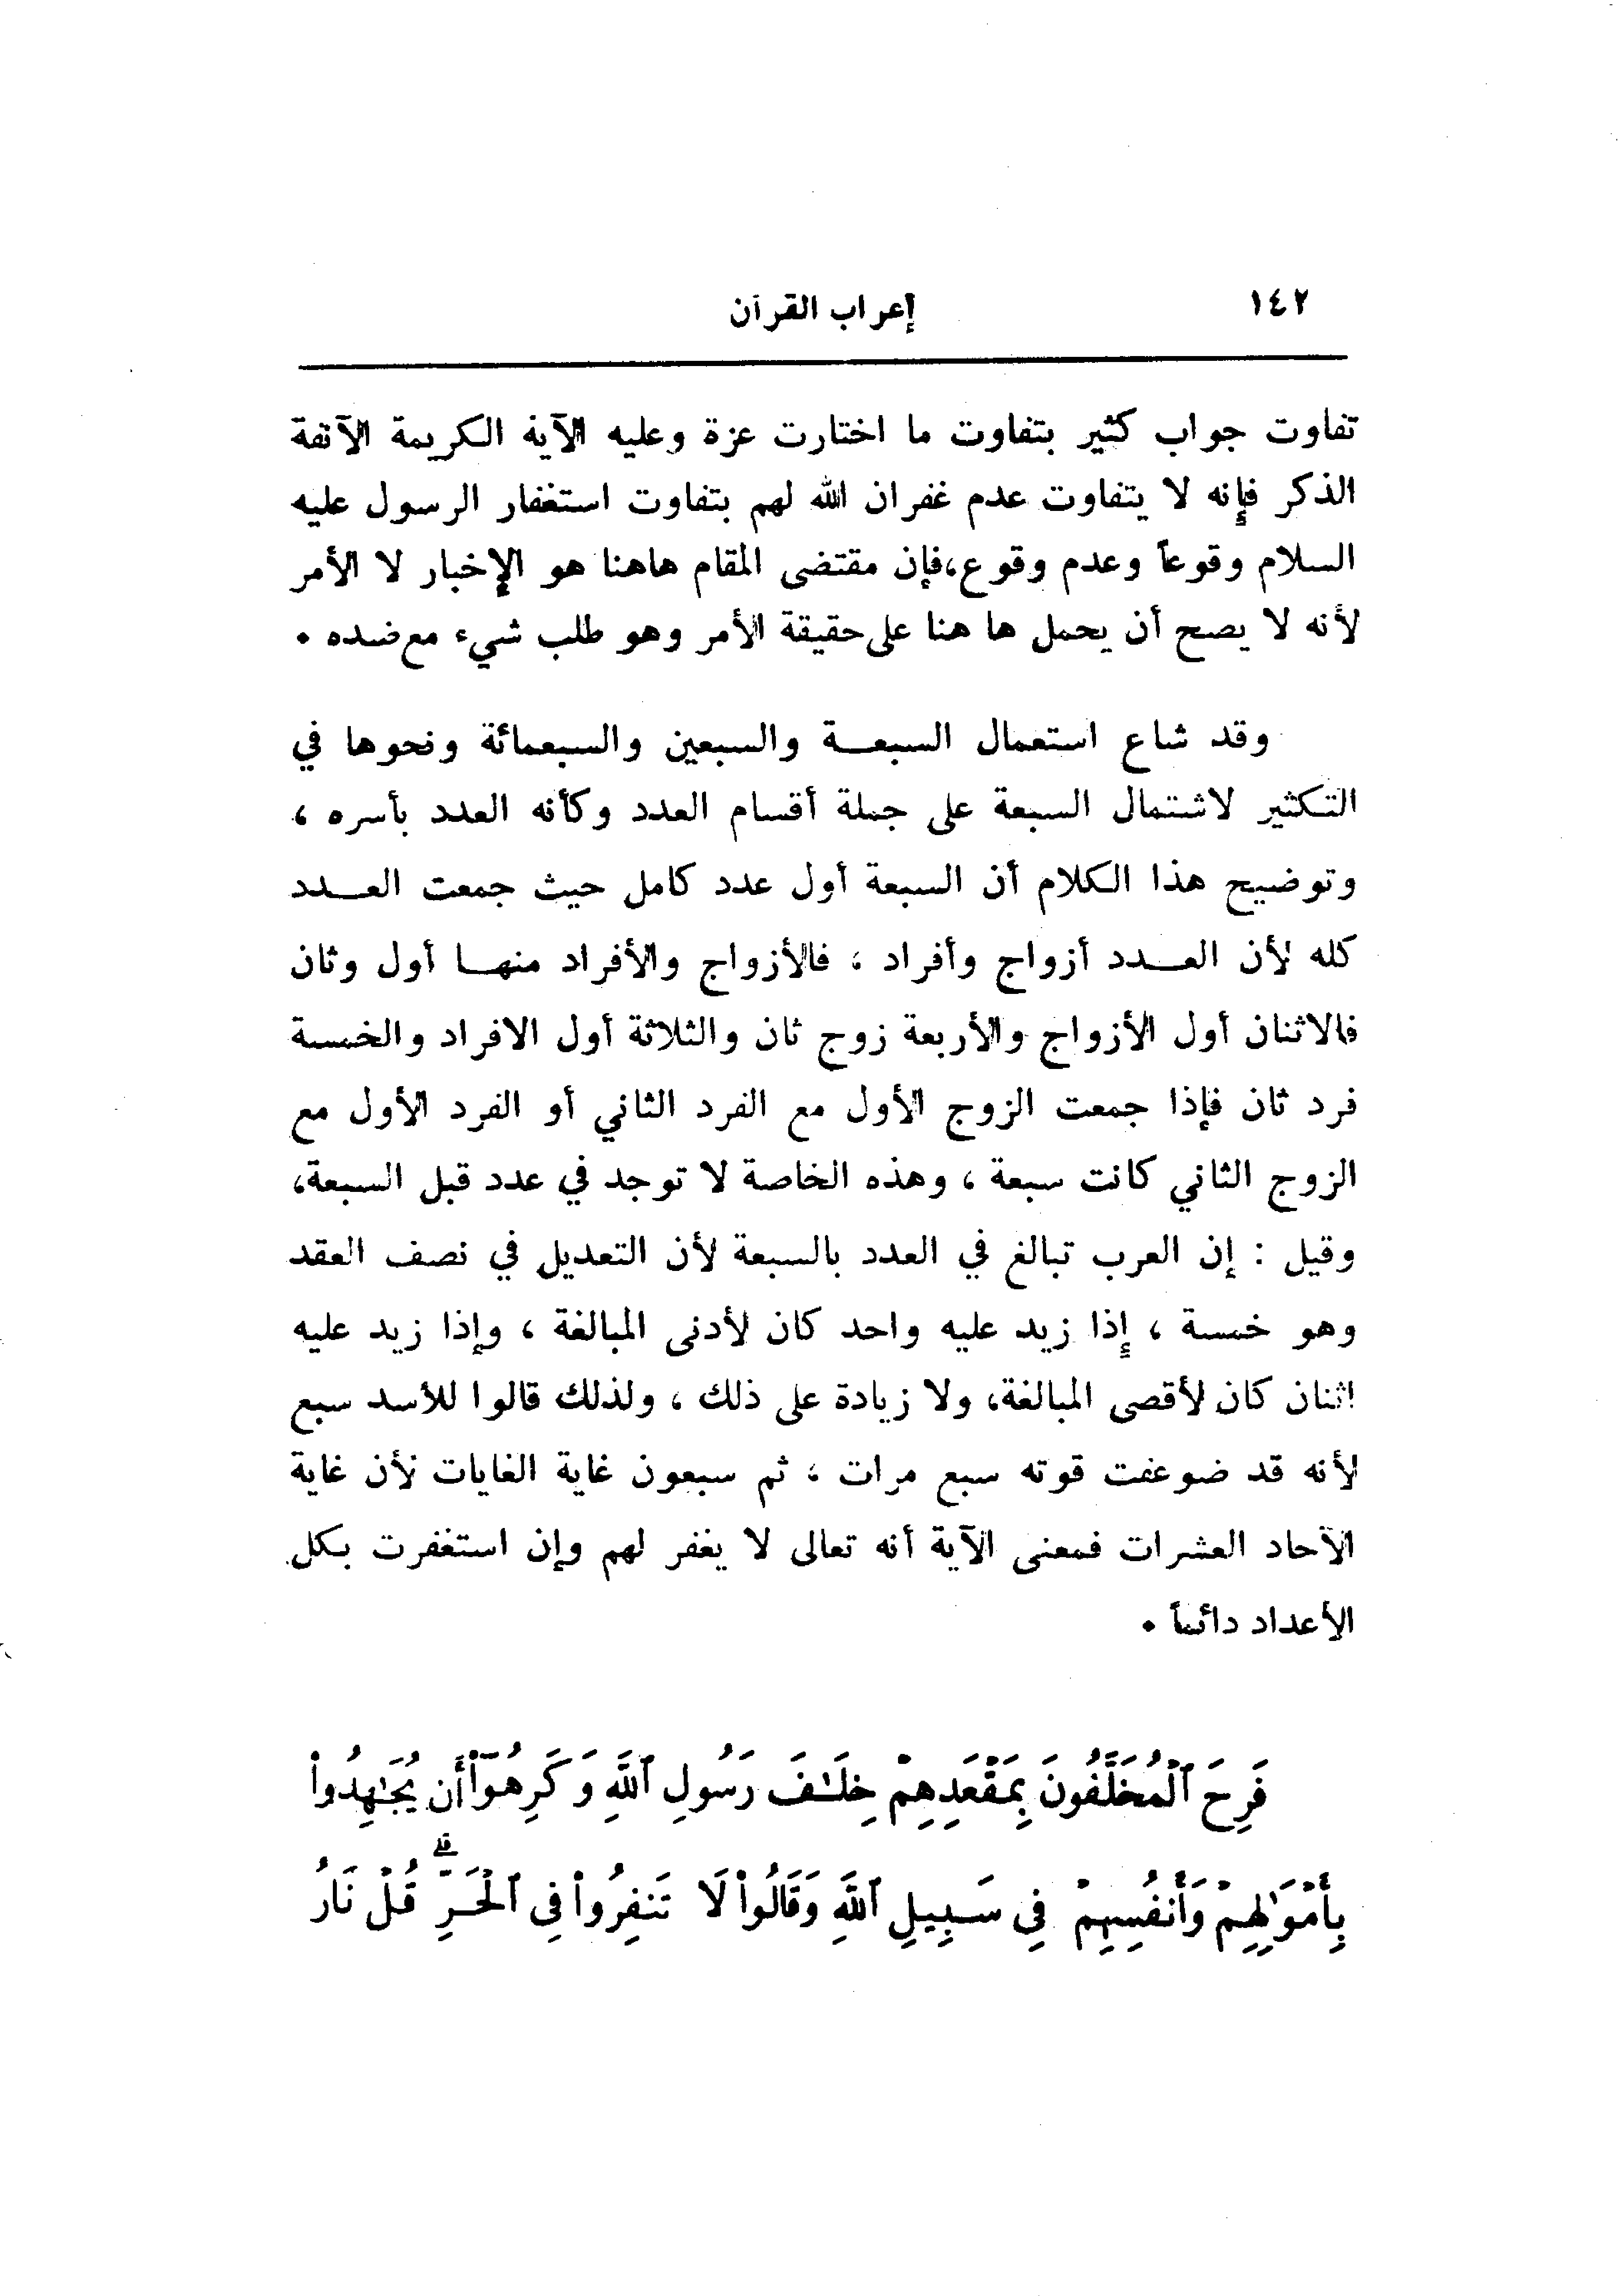 ١٤٢ إعراب القرآن
تفاوت جواب كثير بتفاوت ما اختارت عزة وعليه الآية الكريمة الآنفة
الذكر فإنه لا يتفاوت عدم غفران الله لهم بتفاوت استغفار الرسول عليه
السلام وقوعاً وعدم وقوع،فإن مقتضى المقام هاهنا هو الإخبار لا الأمر
لأنه لا يصح أن يحمل ها هنا على حقيقة الأمر وهو طلب شيء مع ضده •
وقد شاع استعمال السبعـــة والسبعين والسبعمائة ونحوها في
التكثير لاشتمال السبعة على جملة أقسام العدد وكأنه العدد بأسره ،
وتوضيح هذا الكلام أن السبعة أول عدد كامل حيث جمعت العـــدد
كله لأن العـــدد أزواج وأفراد ، فالأزواج والأفراد منهـــا أول وثان
فالاثنان أول الأزواج والأربعة زوج ثان والثلاثة أول الافراد والخمسة
فرد ثان فإذا جمعت الزوج الأول مع الفرد الثاني أو الفرد الأول مع
الزوج الثاني كانت سبعة ، وهذه الخاصة لا توجد في عدد قبل السبعة،
وقيل : إن العرب تبالغ في العدد بالسبعة لأن التعديل في نصف العقد
وهو خمسة ، إذا زيد عليه واحد كان لأدنى المبالغة ، وإذا زيد عليه
اثنان كان لأقصى المبالغة، ولا زيادة على ذلك ، ولذلك قالوا للأسد سبع
لأنه قد ضوعفت قوته سبع مرات ، ثم سبعون غاية الغايات لأن غاية
الآحاد العشرات فمعنى الآية أنه تعالى لا يغفر لهم وإن استغفرت بكل
الأعداد دائماً •
فَرِحَ ٱلْمُخَلَّفُونَ بِمَقْعَدِهِمْ خِلَٰفَ رَسُولِ ٱللَّهِ وَكَرِهُوٓا۟ أَن يُجَٰهِدُوا۟
بِأَمْوَٰلِهِمْ وَأَنفُسِهِمْ فِى سَبِيلِ ٱللَّهِ وَقَالُوا۟ لَا تَنفِرُوا۟ فِى ٱلْحَرِّ ۗ قُلْ نَارُ